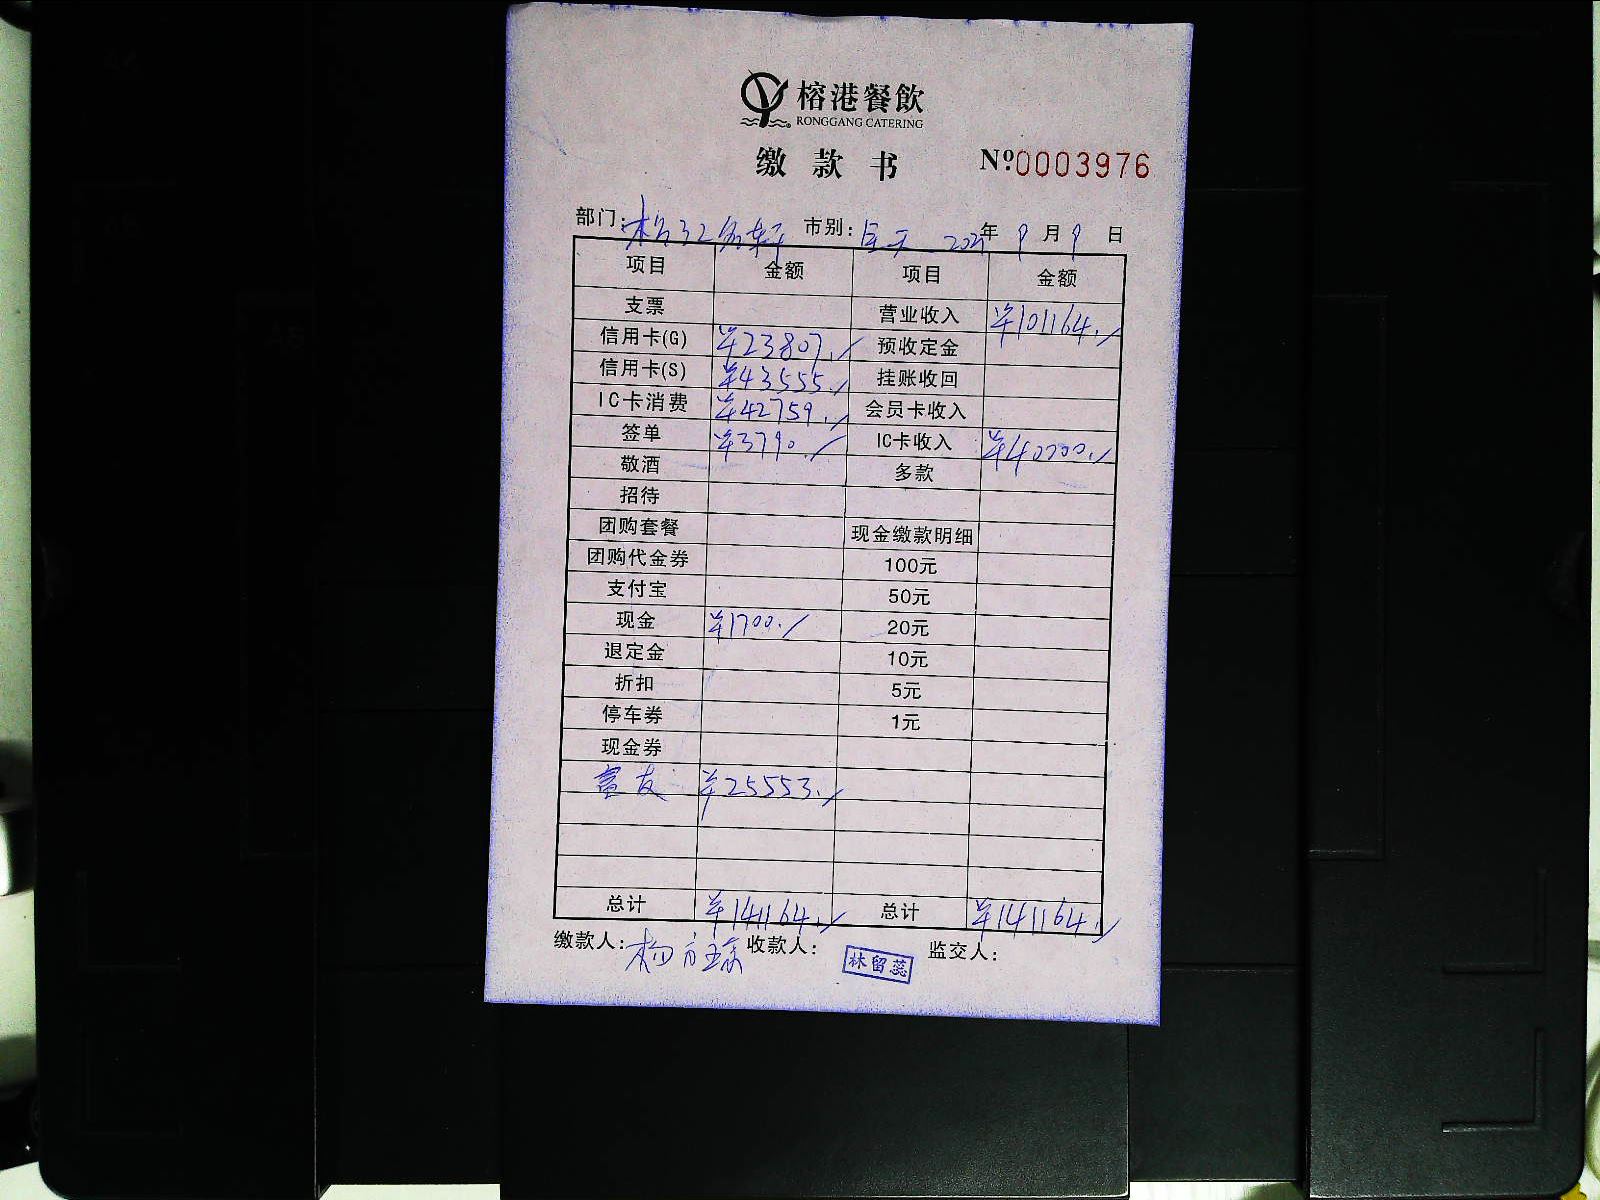 榕港餐飲
RONGGANG CATERING
缴款书 №0003976
部门: 市别:全天 年9月9日
项目 金额 项目 金额
支票 营业收入 ¥101164./
信用卡(G) ¥23807./ 预收定金
信用卡(S) ¥43555./ 挂账收回
IC卡消费 ¥42759./ 会员卡收入
签单 ¥3790./ IC卡收入 ¥40000./
敬酒 多款
招待
团购套餐 现金缴款明细
团购代金券 100元
支付宝 50元
现金 ¥1700./ 20元
退定金 10元
折扣 5元
停车券 1元
现金券
富友 ¥25553./
总计 ¥141164./ 总计 ¥141164./
缴款人: 收款人: 林留蕊 监交人: